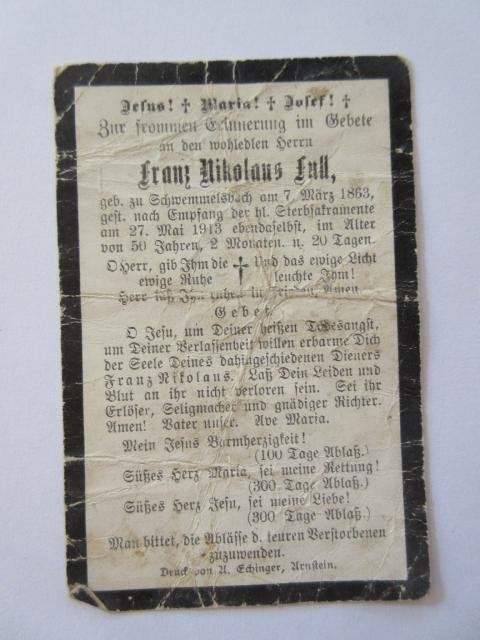 Jesus! † Maria! † Josef! †
Zur frommen Erinnerung im Gebete
an den wohledlen Herrn
Franz Nikolaus Full,
geb. zu Schwemmelsbach am 7 März 1863,
gest. nach Empfang der hl. Sterbsakramente
am 27. Mai 1913 ebendaselbst, im Alter
von 50 Jahren, 2 Monaten. u. 20 Tagen.
O Herr, gib Ihm die † Und das ewige Licht
ewige Ruhe leuchte Ihm!
Herr laß Ihn ruhen in Frieden, Amen
Gebet.
O Jesu, um Deiner heißen Todesangst,
um Deiner Verlassenheit willen erbarme Dich
der Seele Deines dahingeschiedenen Dieners
Franz Nikolaus. Laß Dein Leiden und
Blut an ihr nicht verloren sein. Sei ihr
Erlöser, Seligmacher und gnädiger Richter.
Amen! Vater unser. Ave Maria.
Mein Jesus Barmherzigkeit!
(100 Tage Ablaß.)
Süßes Herz Maria, sei meine Rettung!
(300 Tage Ablaß.)
Süßes Herz Jesu, sei meine Liebe!
(300 Tage Ablaß.)
Man bittet, die Ablässe d. teuren Verstorbenen
zuzuwenden.
Druck von A. Echinger, Arnstein.